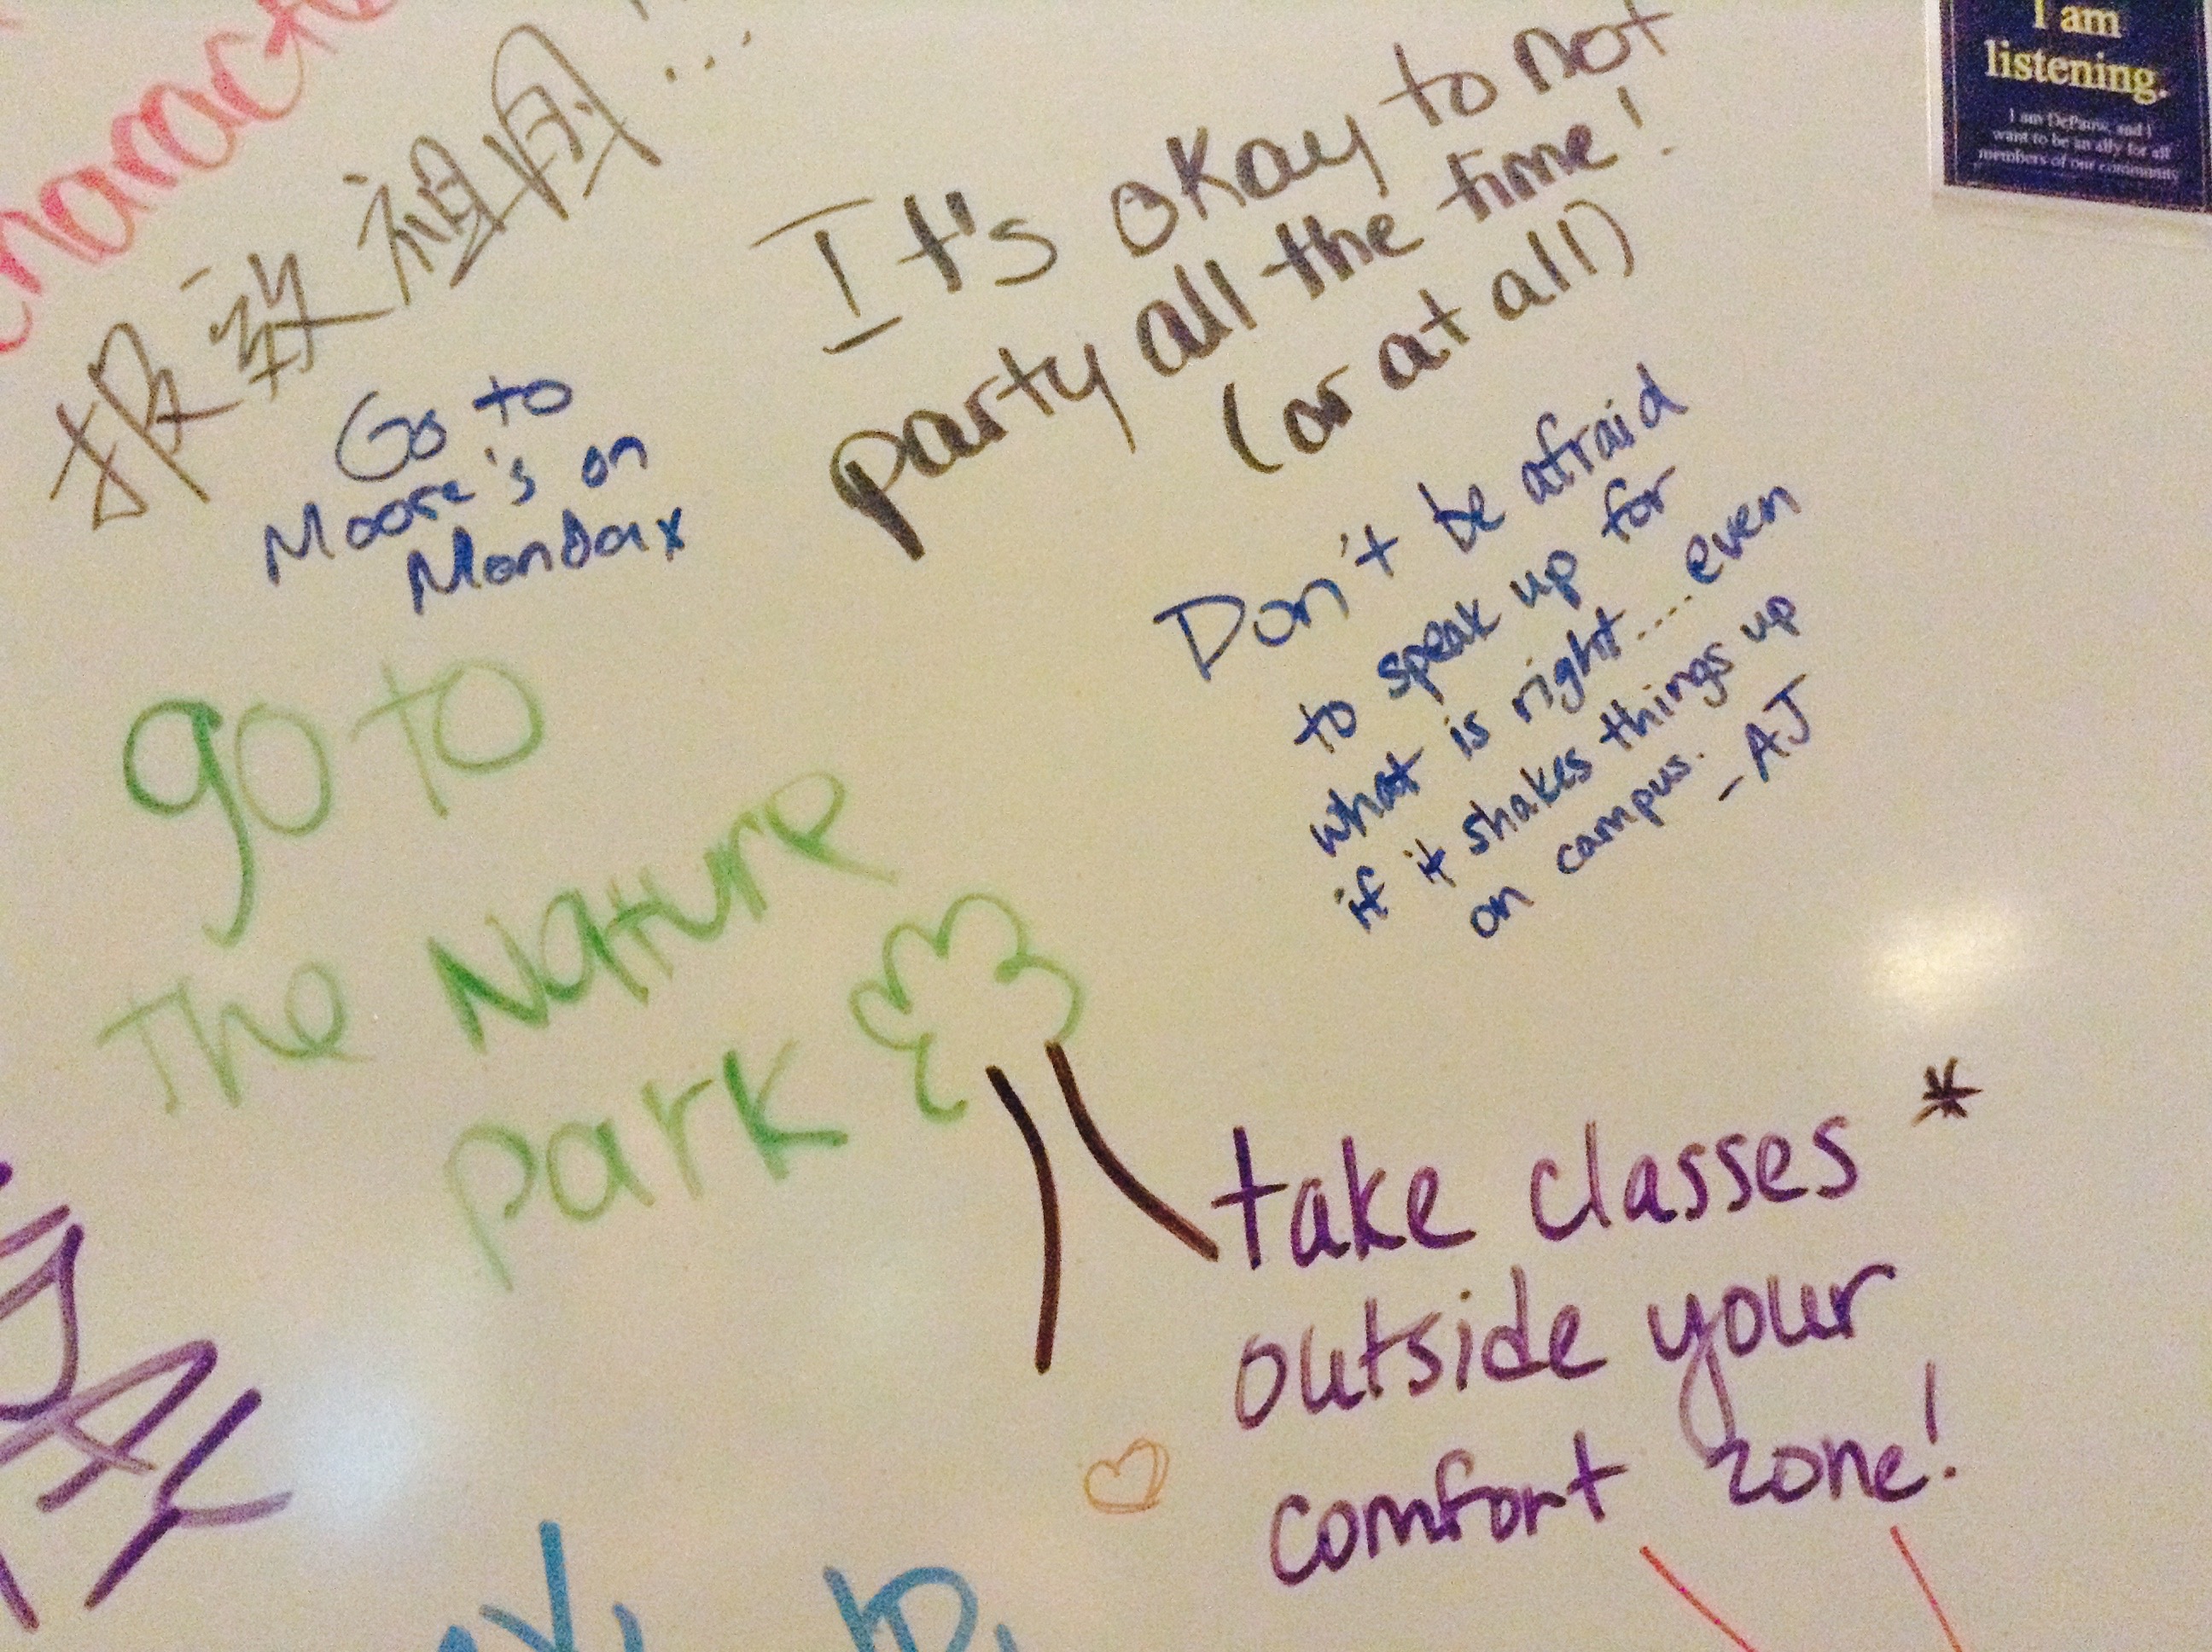 I am
listening.
I am DePauw, and I
want to be an ally for all
members of our community
It's okay to not
party all the time!
(or at all)
Go to
Moore's on
Monday
Don't be afraid
to speak up for
what is right.... even
if it shakes things up
on campus.
-AJ
go to
The Nature
park
take classes *
outside your
comfort zone!